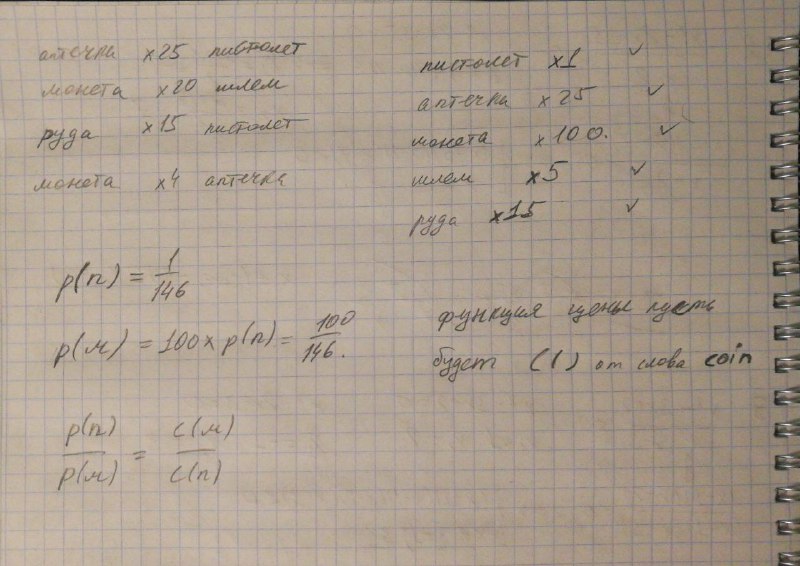 аптечка x25 пистолет
монета x20 шлем
руда x15 пистолет
монета x4 аптечка
пистолет x1 ✓
аптечка x25 ✓
монета x100. ✓
шлем x5 ✓
руда x15 ✓
p(п) = 1/146
p(м) = 100 x p(п) = 100/146.
p(п)/p(м) = c(м)/c(п)
функция цены пусть
будет c() от слова coin